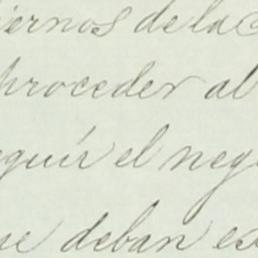 iernos de la C
proceder al
eguir el neg
ue deban es